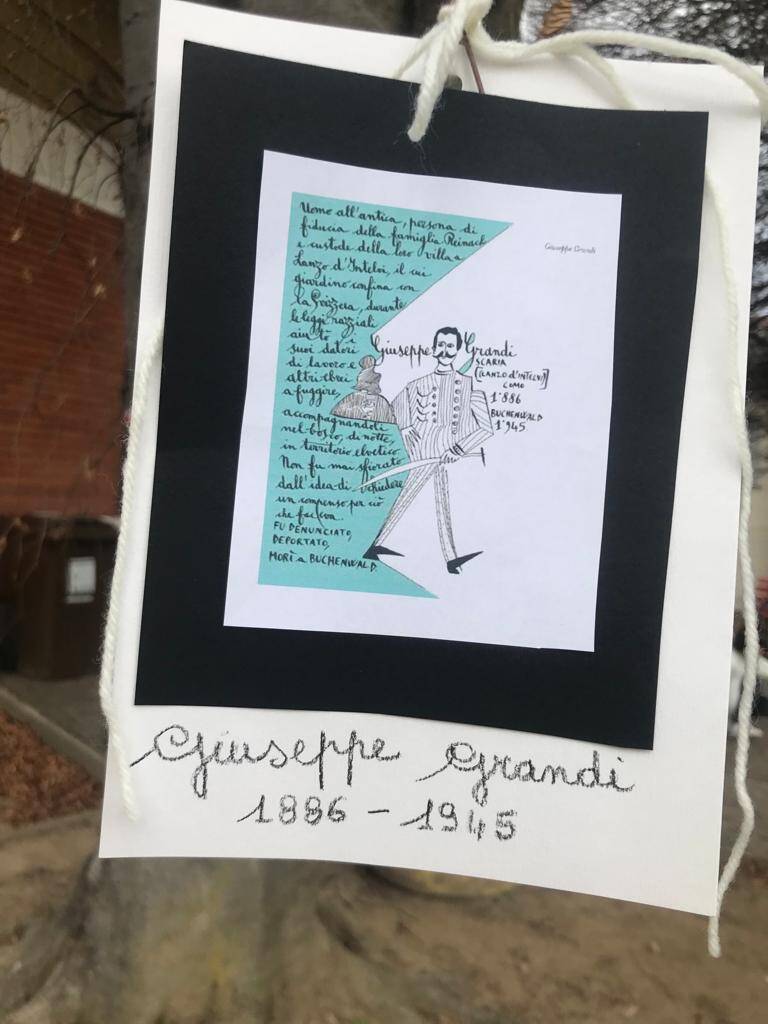 Uomo all'antica, persona di
fiducia della famiglia Reinach
e custode della loro villa a
Lanzo d'Intelvi, il cui
giardino confina con
la Svizzera, durante
le leggi razziali
aiutò i
suoi datori
di lavoro e
altri ebrei
a fuggire,
accompagnandoli
nel bosco, di notte,
in territorio elvetico.
Non fu mai sfiorato
dall'idea di chiedere
un compenso per ciò
che faceva.
FU DENUNCIATO,
DEPORTATO,
MORÌ a BUCHENWALD.
Giuseppe Grandi
Giuseppe Grandi
SCARIA
(LANZO d'INTELVI)
COMO
1'886
BUCHENWALD
1'945
Giuseppe Grandi
1886 - 1945